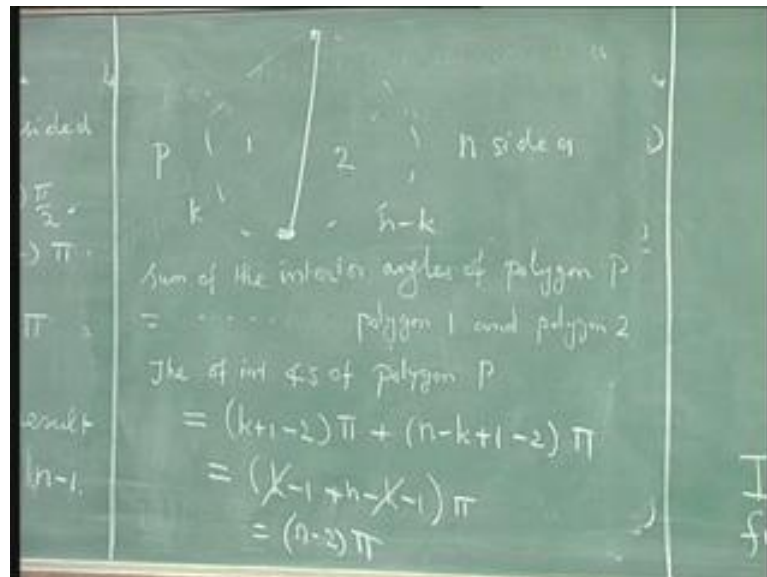 sided
π/2.
) π.
π .
result
n-1.
P 1 2 n sides
k n-k
Sum of the interior angles of polygon P
= ...... polygon 1 and polygon 2
The of int ∡s of polygon P
= (k+1-2) π + (n-k+1-2) π
= (k-1+n-k-1) π
= (n-2) π
I